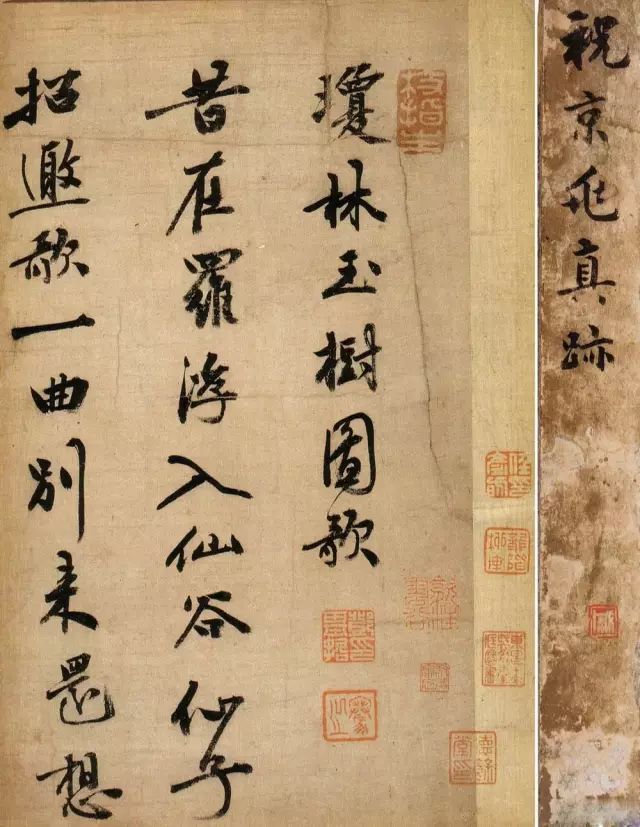 祝京兆真跡
枝指生
瓊林玉樹圖歌
昔在羅浮入仙谷仙子
招邀歌一曲別来還想